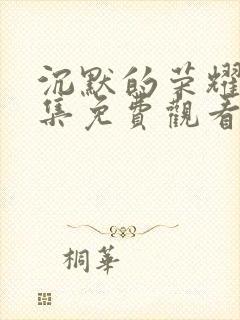 沉默的荣耀
集免費觀看
桐華